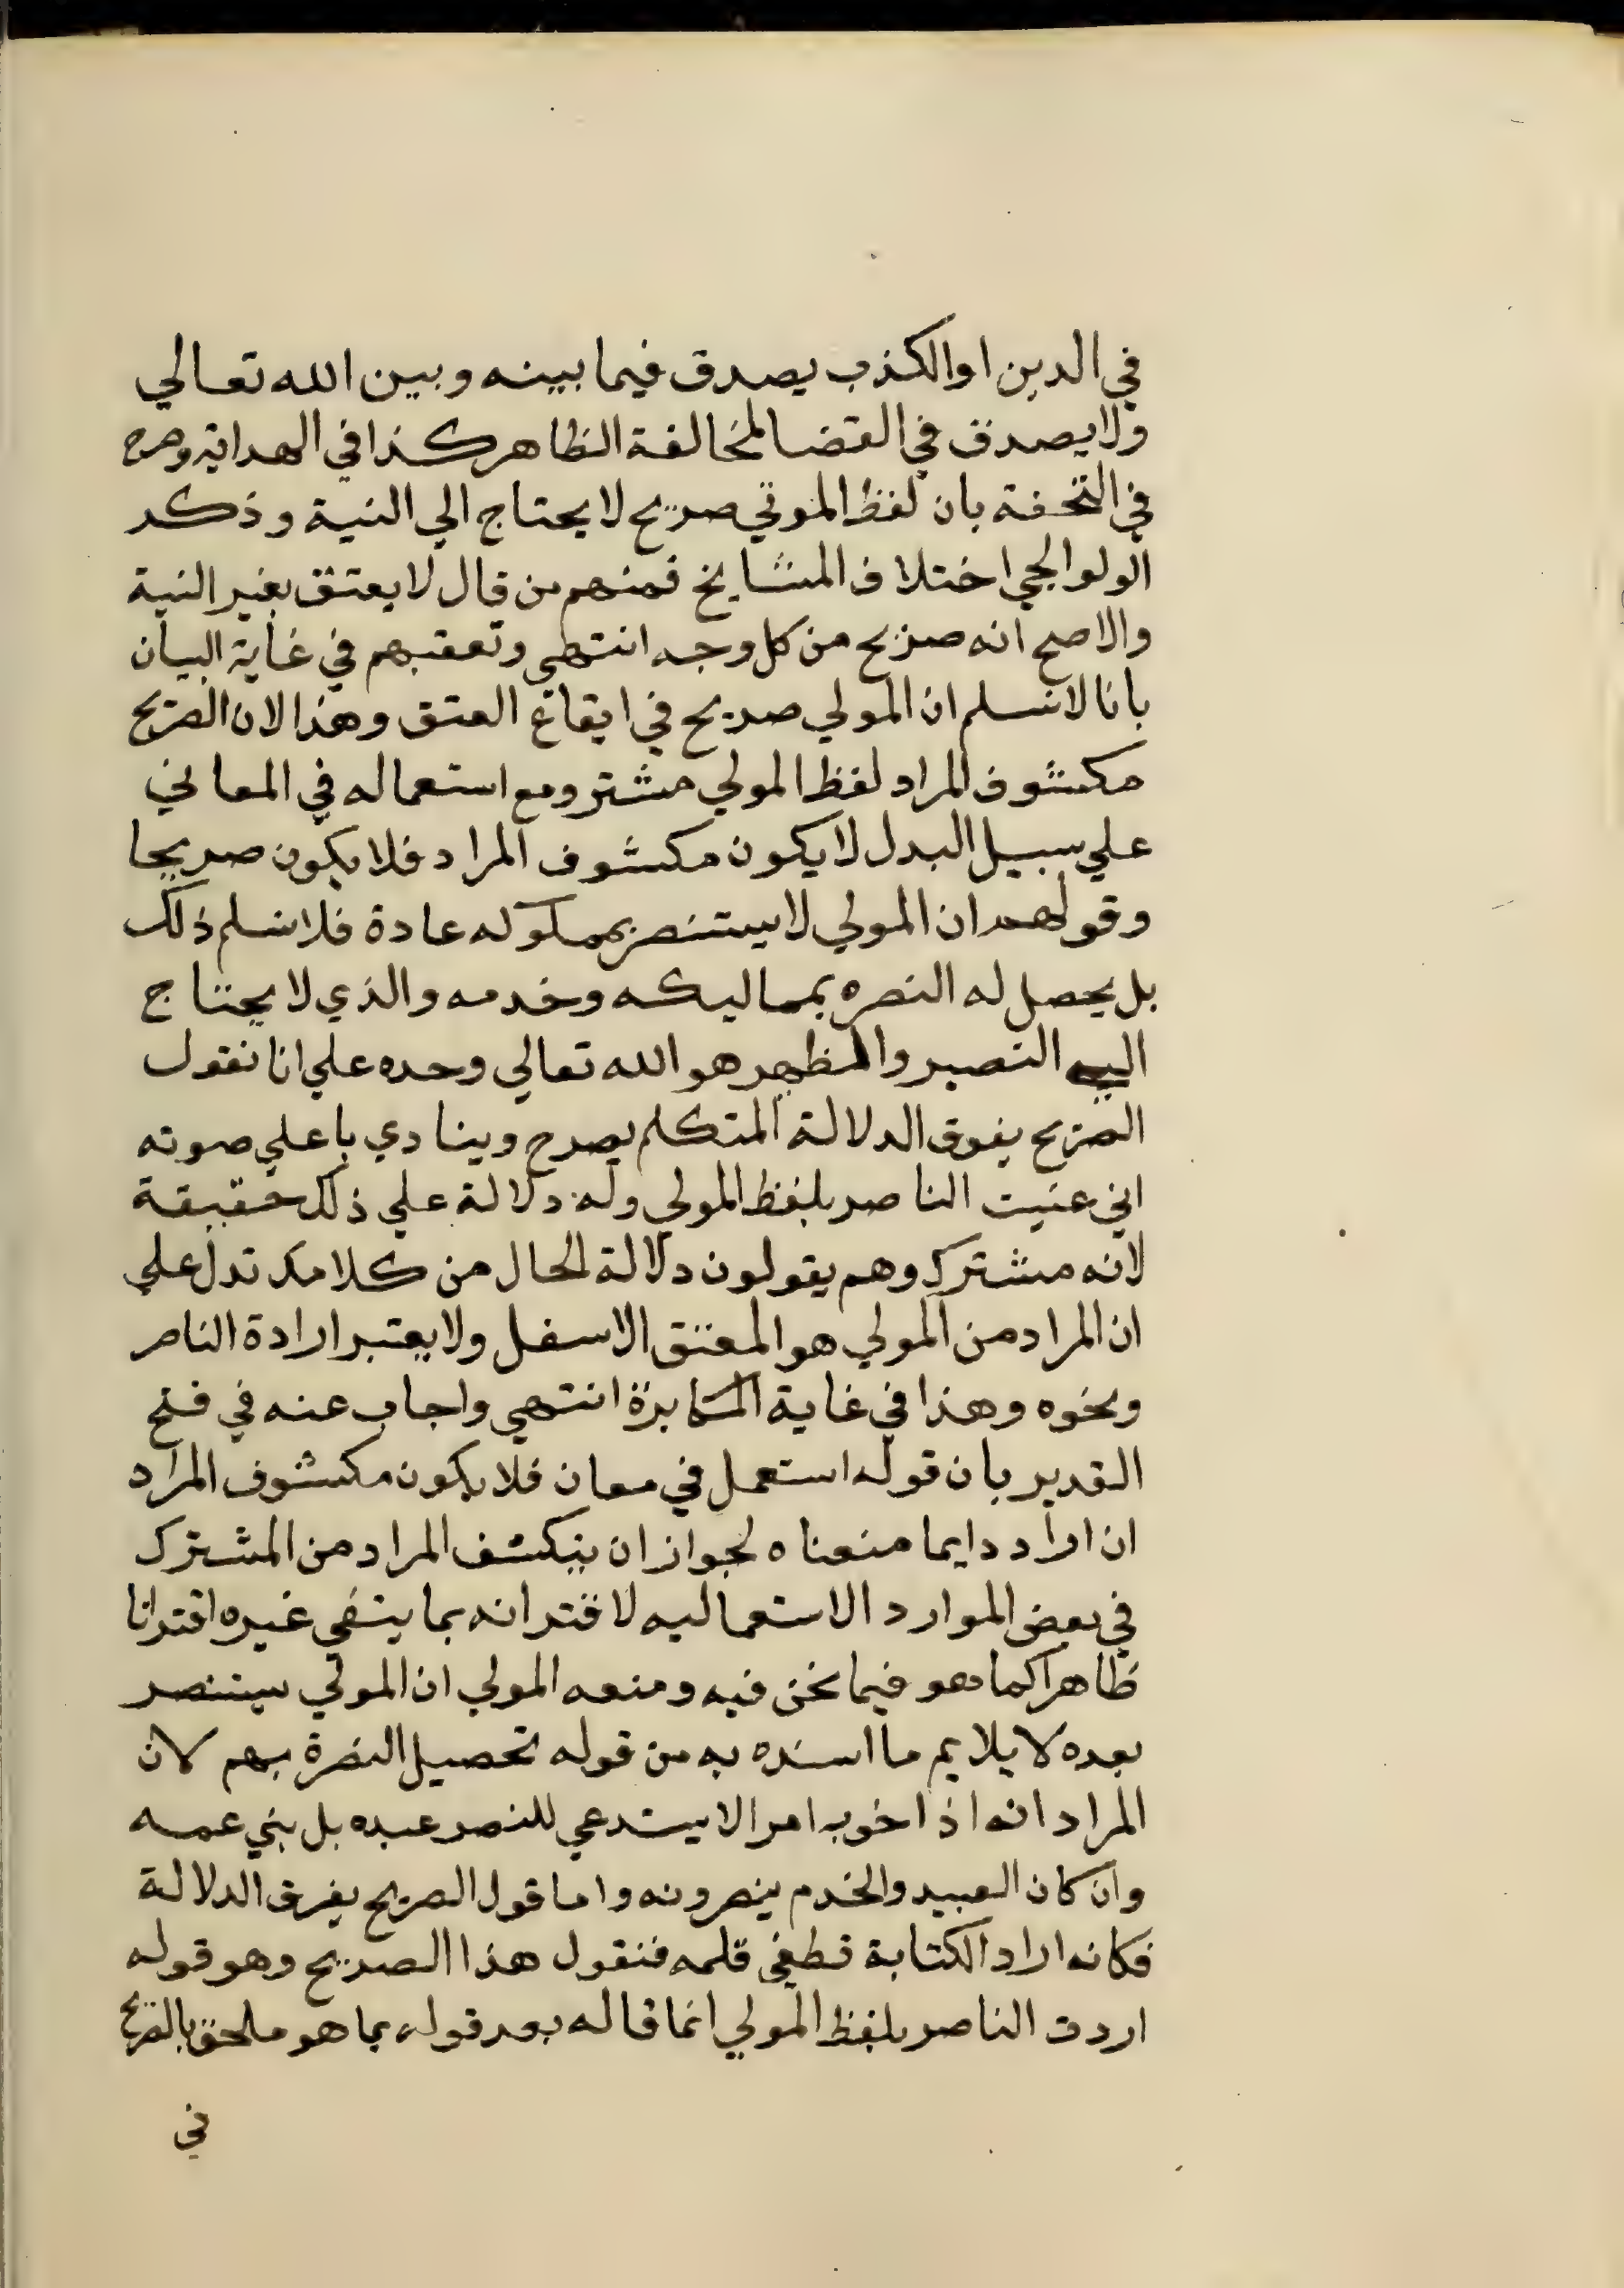 في الدين او الكذب يصدق فيما بينه وبين الله تعالي
ولا يصدق في القضا لمخالفة الظاهر كذا في الهداية وصرح
في التحفة بان لفظ المولي صريح لا يحتاج الي النية وذكر
الولوالجي اختلاف المشايخ فمنهم من قال لا يعتق بغير النية
والاصح انه صريح من كل وجه انتهي وتعقبهم في غاية البيان
بانا لا نسلم ان المولي صريح في ايقاع العتق وهذا لان الصريح
مكشوف المراد لفظ المولي مشتر ومع استعماله في المعاني
علي سبيل البدل لا يكون مكشوف المراد فلا يكون صريحا
وقولهم ان المولي لا يستنصر بمملوكه عادة فلا نسلم ذلك
بل يحصل له النصره بمماليكه وخدمه والذي لا يحتاج
اليه النصير والمظهر هو الله تعالي وحده علي انا نقول
الصريح يفوق الدلالة المتكلم يصرح وينادي باعلي صوته
اني عنيت الناصر بلفظ المولي وله دلالة علي ذلك حقيقة
لانه مشترك وهم يقولون دلالة الحال من كلامك تدل علي
ان المراد من المولي هو المعتق الاسفل ولا يعتبر ارادة الناصر
ونحوه وهذا في غاية المكابرة انتهي واجاب عنه في فتح
القدير بان قوله استعمل في معان فلا يكون مكشوف المراد
ان اراد دايما منعناه لجواز ان ينكشف المراد من المشترك
في بعض الموارد الاستعماليه لاقترانه بما ينفي غيره اقترانا
ظاهرا كما هو فيما نحن فيه ومنعه المولي ان المولي يستنصر
بعبده لا يلايم ما اسنده به من قوله تحصيل النصرة بهم لان
المراد انه اذا حزبه امر الا يستدعي للنصر عبده بل بني عمه
وان كان العبيد والخدم ينصرونه واما قول الصريح يفوق الدلالة
فكانه اراد الكتابة فطغي قلمه فنقول هذا الصريح وهو قوله
اردت الناصر بلفظ المولي انما قاله بعد قوله بما هو ملحق بالصريح
في